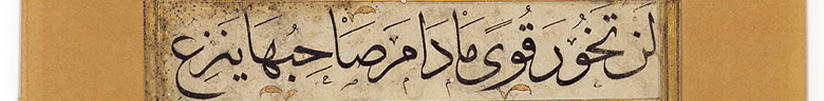 لَنْ تَخُوْرَ قُوًى مَاْ دَامَ صَاحِبُهَا يَنْزِعُ